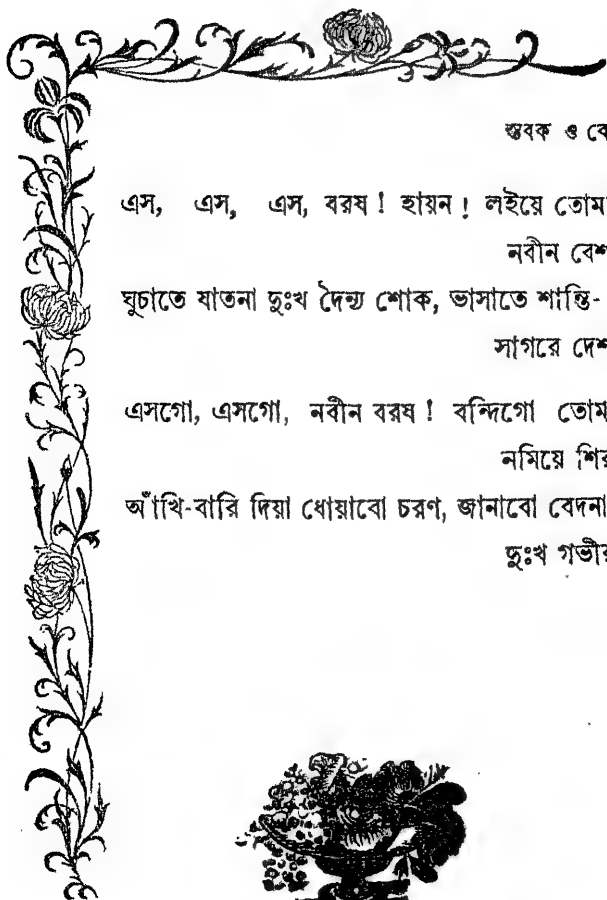 স্তবক ও কে
এস, এস, এস, বরষ ! হায়ন ! লইয়ে তোম
নবীন বেশ
ঘুচাতে যাতনা দুঃখ দৈন্য শোক, ভাসাতে শান্তি-
সাগরে দেশ
এসগো, এসগো, নবীন বরষ ! বন্দিগো তোম
নমিয়ে শির
আঁখি-বারি দিয়া ধোয়াবো চরণ, জানাবো বেদনা
দুঃখ গভীর